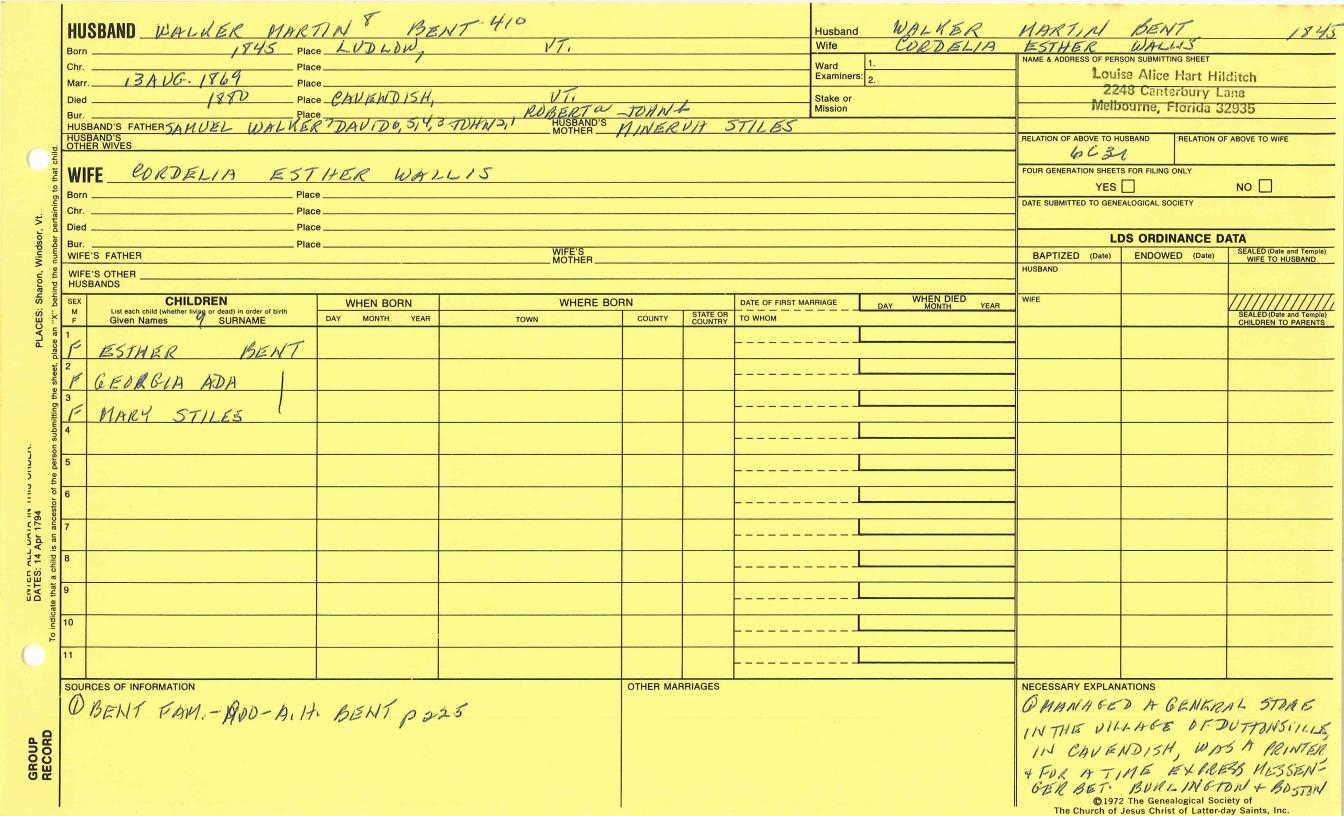 HUSBAND WALKER MARTIN 8 BENT-410
Born 1845 Place LUDLOW, VT.
Chr. Place
Marr. 13 AUG. 1869 Place
Died 1880 Place CAVENDISH, VT.
Bur. Place ROBERT a JOHN b
HUSBAND'S FATHER SAMUEL WALKER 7 DAVID 6, 5, 4, 3 JOHN 2, 1 HUSBAND'S MOTHER MINERVA STILES
HUSBAND'S OTHER WIVES
WIFE CORDELIA ESTHER WALLIS
Born Place
Chr. Place
Died Place
Bur. Place
WIFE'S FATHER WIFE'S MOTHER
WIFE'S OTHER HUSBANDS
Husband WALKER MARTIN BENT 1845
Wife CORDELIA ESTHER WALLIS
Ward Examiners: 1.
2.
Stake or Mission
NAME & ADDRESS OF PERSON SUBMITTING SHEET
Louise Alice Hart Hilditch
2248 Canterbury Lane
Melbourne, Florida 32935
RELATION OF ABOVE TO HUSBAND RELATION OF ABOVE TO WIFE
6C3R
FOUR GENERATION SHEETS FOR FILING ONLY
YES NO
DATE SUBMITTED TO GENEALOGICAL SOCIETY
LDS ORDINANCE DATA
BAPTIZED (Date) ENDOWED (Date) SEALED (Date and Temple) WIFE TO HUSBAND
HUSBAND
WIFE
SEALED (Date and Temple) CHILDREN TO PARENTS
SEX M F
CHILDREN
List each child (whether living or dead) in order of birth
Given Names 9 SURNAME
WHEN BORN
DAY MONTH YEAR
WHERE BORN
TOWN COUNTY STATE OR COUNTRY
DATE OF FIRST MARRIAGE
TO WHOM
WHEN DIED
DAY MONTH YEAR
1 F ESTHER BENT
2 F GEORGIA ADA
3 F MARY STILES
4
5
6
7
8
9
10
11
SOURCES OF INFORMATION
① BENT FAM.-ADD-A.H. BENT p 225
OTHER MARRIAGES
NECESSARY EXPLANATIONS
① MANAGED A GENERAL STORE
IN THE VILLAGE OF DUTTONSVILLE,
IN CAVENDISH, WAS A PRINTER
+ FOR A TIME EXPRESS MESSEN-
GER BET. BURLINGTON + BOSTON
©1972 The Genealogical Society of
The Church of Jesus Christ of Latter-day Saints, Inc.
PLACES: Sharon, Windsor, Vt.
DATES: 14 Apr 1794
ENTER ALL DATA IN THIS ORDER:
To indicate that a child is an ancestor of the person submitting the sheet, place an "X" behind the number pertaining to that child.
GROUP RECORD